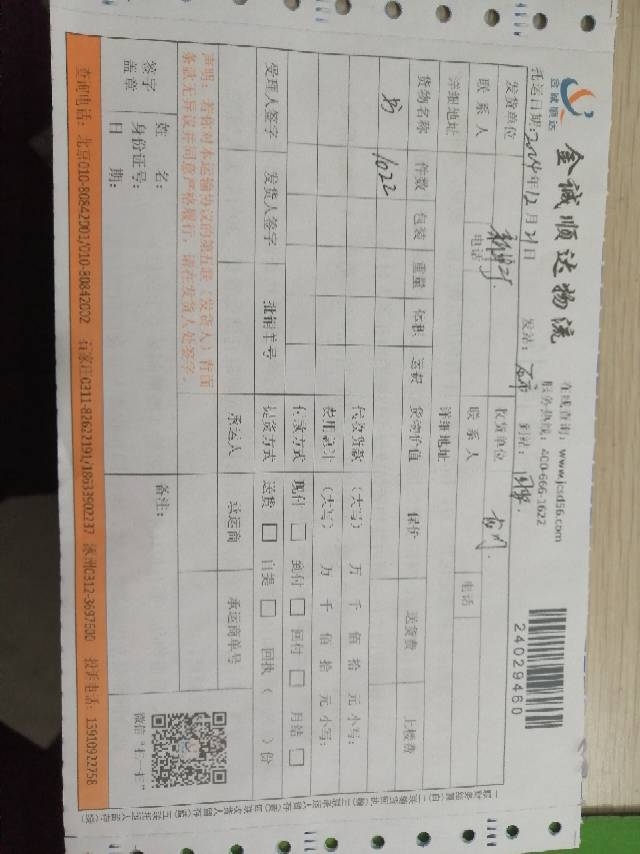 金诚顺达
金诚顺达物流
在线查询：www.jcsd56.com
服务热线：400-666-1622
24029460
托运日期：2014年12月21日 发站： 到站：
发货单位 收货单位
联系人 电话 联系人 电话
详细地址 详细地址
货物名称 件数 包装 重量 体积 运费 货物价值 保价 送货费 上楼费
书 1022
代收货款 （大写） 万 仟 佰 拾 元 小写：
费用总计 （大写） 万 仟 佰 拾 元 小写：
付款方式 现付 到付 回付 月结
受理人签字 发货人签字 批销单号 提货方式 送货 自提 回执（ ）份
承运人 承运商 承运商单号
声明：若有对本运输协议的第五联（发货人）背面
条款无异议并同意严格履行，请在发货人处签字。
签字盖章 姓名： 备注：
身份证号：
日期：
微信"扫一扫"
查询电话：北京010-80842001/010-80842002 石家庄0311-82622191/18633902237 涿州0312-3697500 投诉电话：15910922758